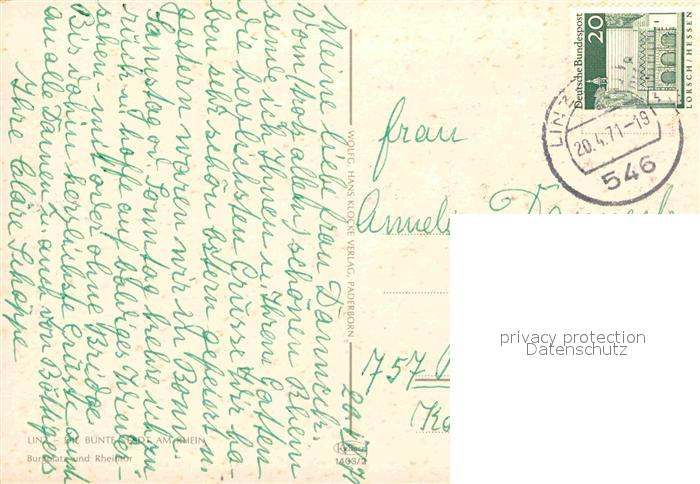 Meine liebe Frau Dannert.
Vom (trotz allem) schönen Rhein
sende ich Ihnen u. Ihrem Gatten
die herzlichsten Grüsse. Wir ha-
ben sehr schön Ostern gefeiert u.
gestern waren wir in Bonn.
Samstag od. Sonntag kehre ich zu-
rück u. hoffe auf baldiges Wieder-
sehen - mit oder ohne Bridge.
Bis dahin herzlichste Grüsse auch
an alle Damen u. auch von Böttgers
Ihre Cläre Schoppe
20.4.71
WOLFG. HANS KLOCKE VERLAG, PADERBORN
LINZ - DIE BUNTE STADT AM RHEIN
Burgplatz und Rheintor
1403/2
Deutsche Bundespost
20
LORSCH / HESSEN
LINZ
20.4.71-19
546
Frau
Annelie
757
privacy protection
Datenschutz